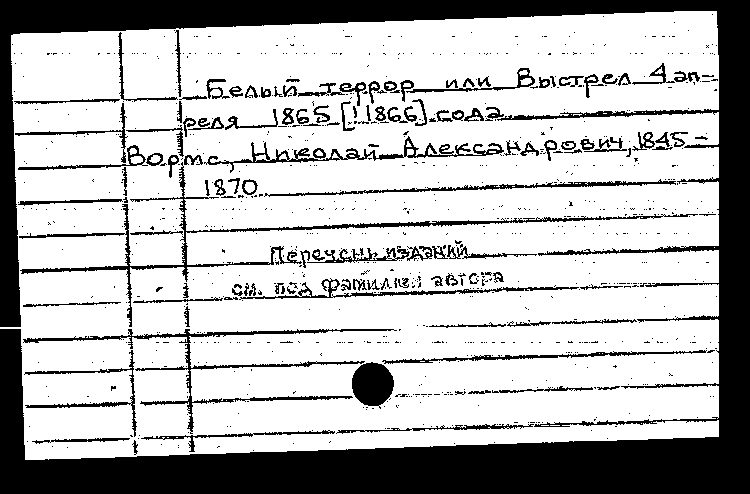 Белый террор или Выстрел 4 ап-
реля 1865 [! 1866] года
Вормс, Николай Александрович, 1845-
1870
Перечень изданий
см. под фамилией автора